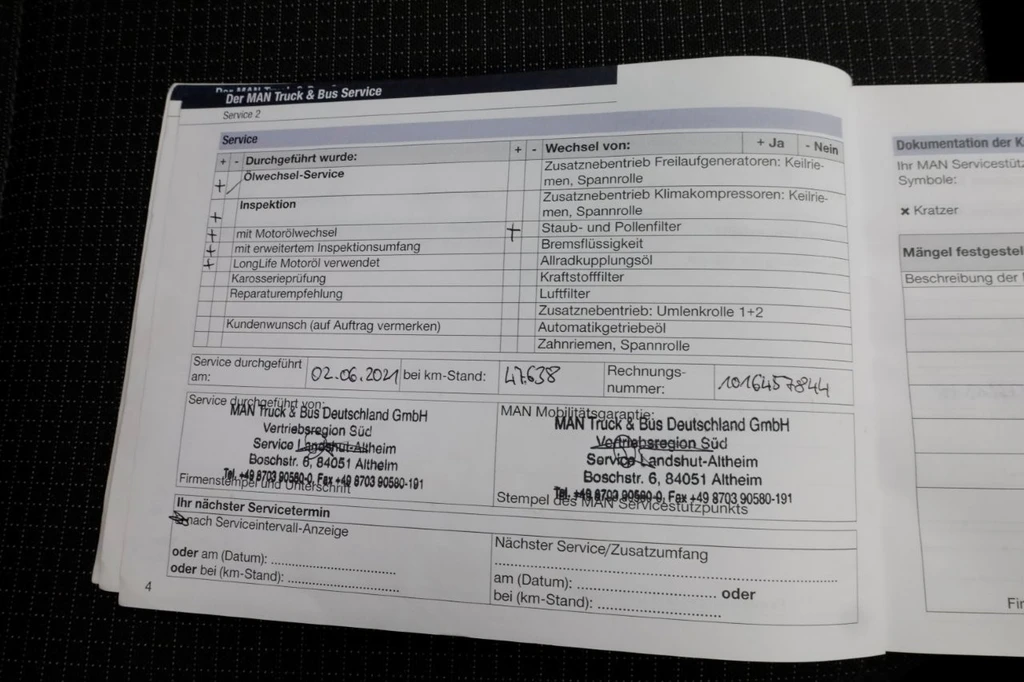 Der MAN Truck & Bus Service
Service 2
Service
+ - Durchgeführt wurde:
+ Ölwechsel-Service
+ Inspektion
+ mit Motorölwechsel
+ mit erweitertem Inspektionsumfang
+ LongLife Motoröl verwendet
Karosserieprüfung
Reparaturempfehlung
Kundenwunsch (auf Auftrag vermerken)
+ - Wechsel von: + Ja - Nein
Zusatznebentrieb Freilaufgeneratoren: Keilrie-
men, Spannrolle
Zusatznebentrieb Klimakompressoren: Keilrie-
men, Spannrolle
+ Staub- und Pollenfilter
Bremsflüssigkeit
Allradkupplungsöl
Kraftstofffilter
Luftfilter
Zusatznebentrieb: Umlenkrolle 1+2
Automatikgetriebeöl
Zahnriemen, Spannrolle
Service durchgeführt
am: 02.06.2021 bei km-Stand: 47.638 Rechnungs-
nummer: 1016457844
Service durchgeführt von:
MAN Truck & Bus Deutschland GmbH
Vertriebsregion Süd
Service Landshut-Altheim
Boschstr. 6, 84051 Altheim
Tel. +49 8703 90580-0, Fax +49 8703 90580-191
Firmenstempel und Unterschrift
MAN Mobilitätsgarantie:
MAN Truck & Bus Deutschland GmbH
Vertriebsregion Süd
Service Landshut-Altheim
Boschstr. 6, 84051 Altheim
Tel. +49 8703 90580-0, Fax +49 8703 90580-191
Stempel des MAN Servicestützpunkts
Ihr nächster Servicetermin
nach Serviceintervall-Anzeige
oder am (Datum):
oder bei (km-Stand):
Nächster Service/Zusatzumfang
am (Datum): oder
bei (km-Stand):
4
Dokumentation der K
Ihr MAN Servicestütz
Symbole:
× Kratzer
Mängel festgestel
Beschreibung der
Fir